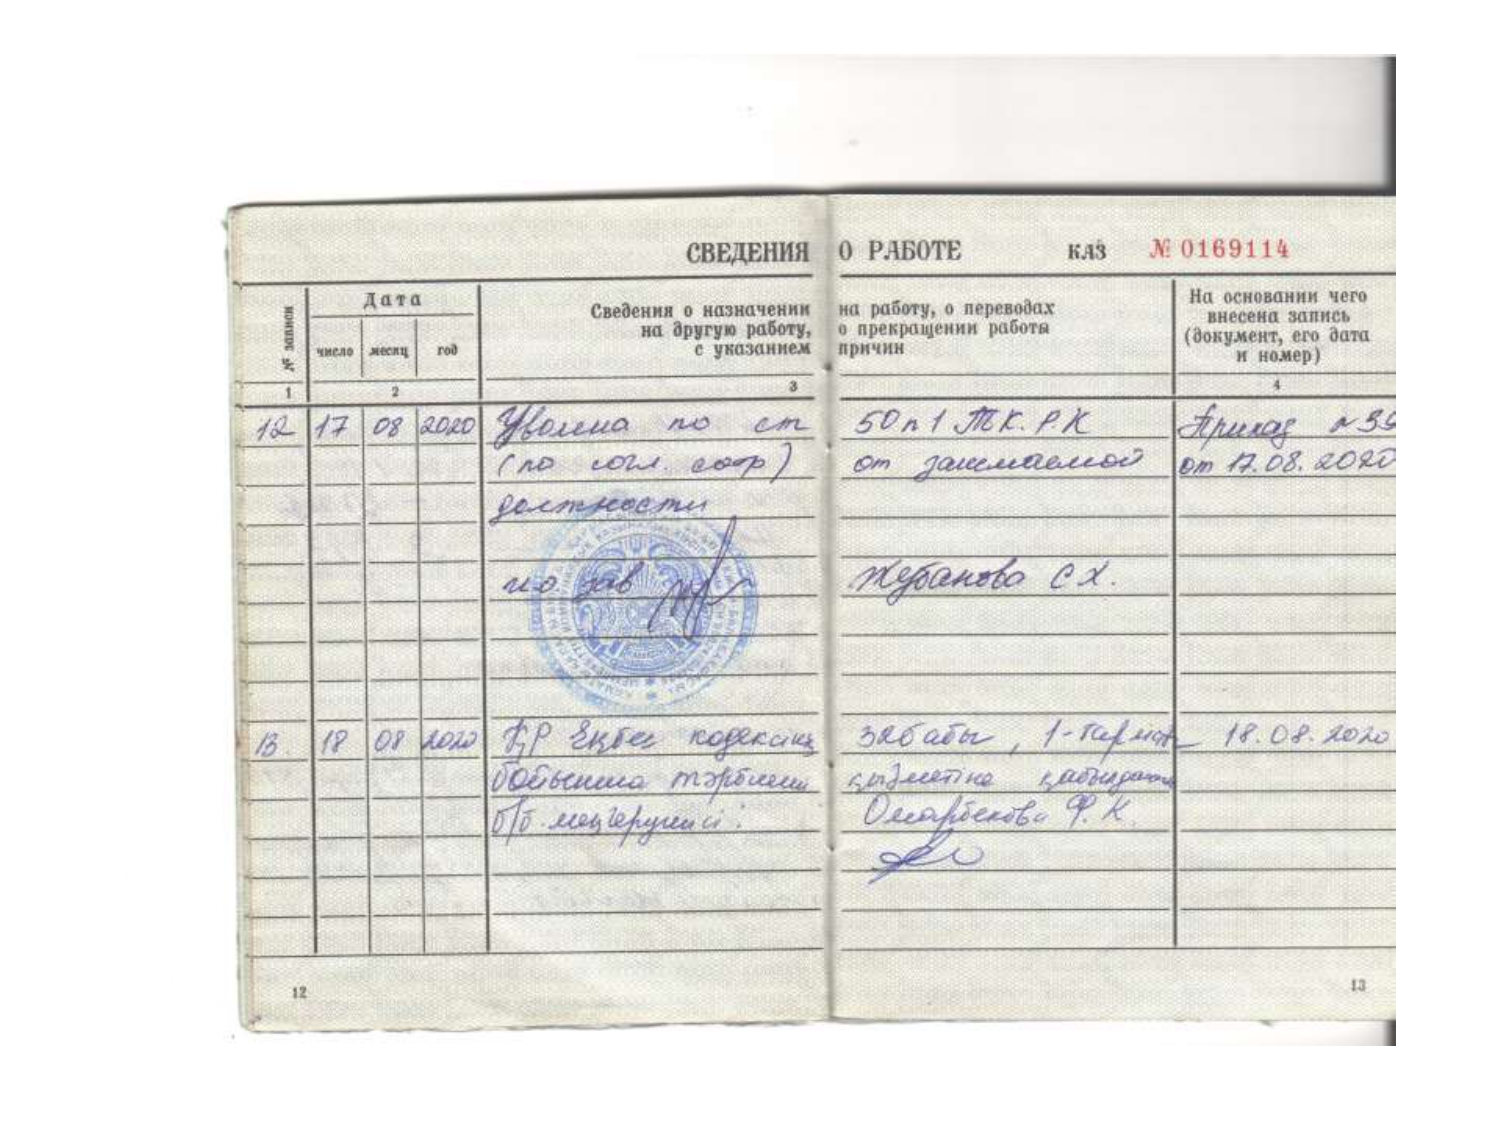 СВЕДЕНИЯ О РАБОТЕ КАЗ № 0169114
№ записи
Дата
число месяц год
Сведения о назначении на работу, о переводах
на другую работу, о прекращении работы
с указанием причин
На основании чего
внесена запись
(документ, его дата
и номер)
1 2 3 4
12 17 08 2020 Уволена по ст 50 п 1 ТК. РК Приказ №
(по согл. стор) от занимаемой от 17.08.2020
должности
и.о. зав Жубанова С.Х.
13 18 08 2020 ҚР Еңбек кодексінің бабы, 1-тармақ 18.08.2020
бойынша тәрбиеші қызметіне қабылданды
б/б меңгерушісі: Омарбекова Ф.К.
12 13